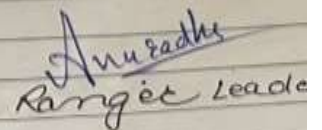 Anuradha
Ranger Leade